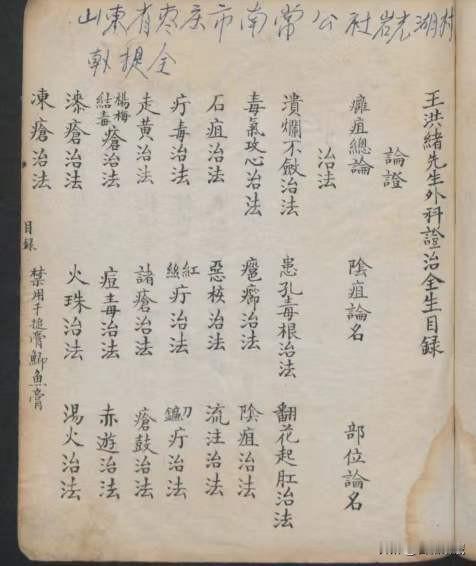 山東省枣庄市南常公社岩湖村
提全
王洪緒先生外科證治全生目録
論證
癰疽總論 陰疽論名 部位論名
治法
潰爛不斂治法 患孔毒根治法 翻花起肛治法
毒氣攻心治法 瘰癧治法 陰疽治法
石疽治法 惡核治法 流注治法
疔毒治法 紅絲疔治法 刀鐮疔治法
走黃治法 諸瘡治法 瘡鼓治法
楊梅結毒瘡治法 痘毒治法 赤遊治法
漆瘡治法 火珠治法 湯火治法
凍瘡治法
目録 禁用千搥膏鯽魚膏